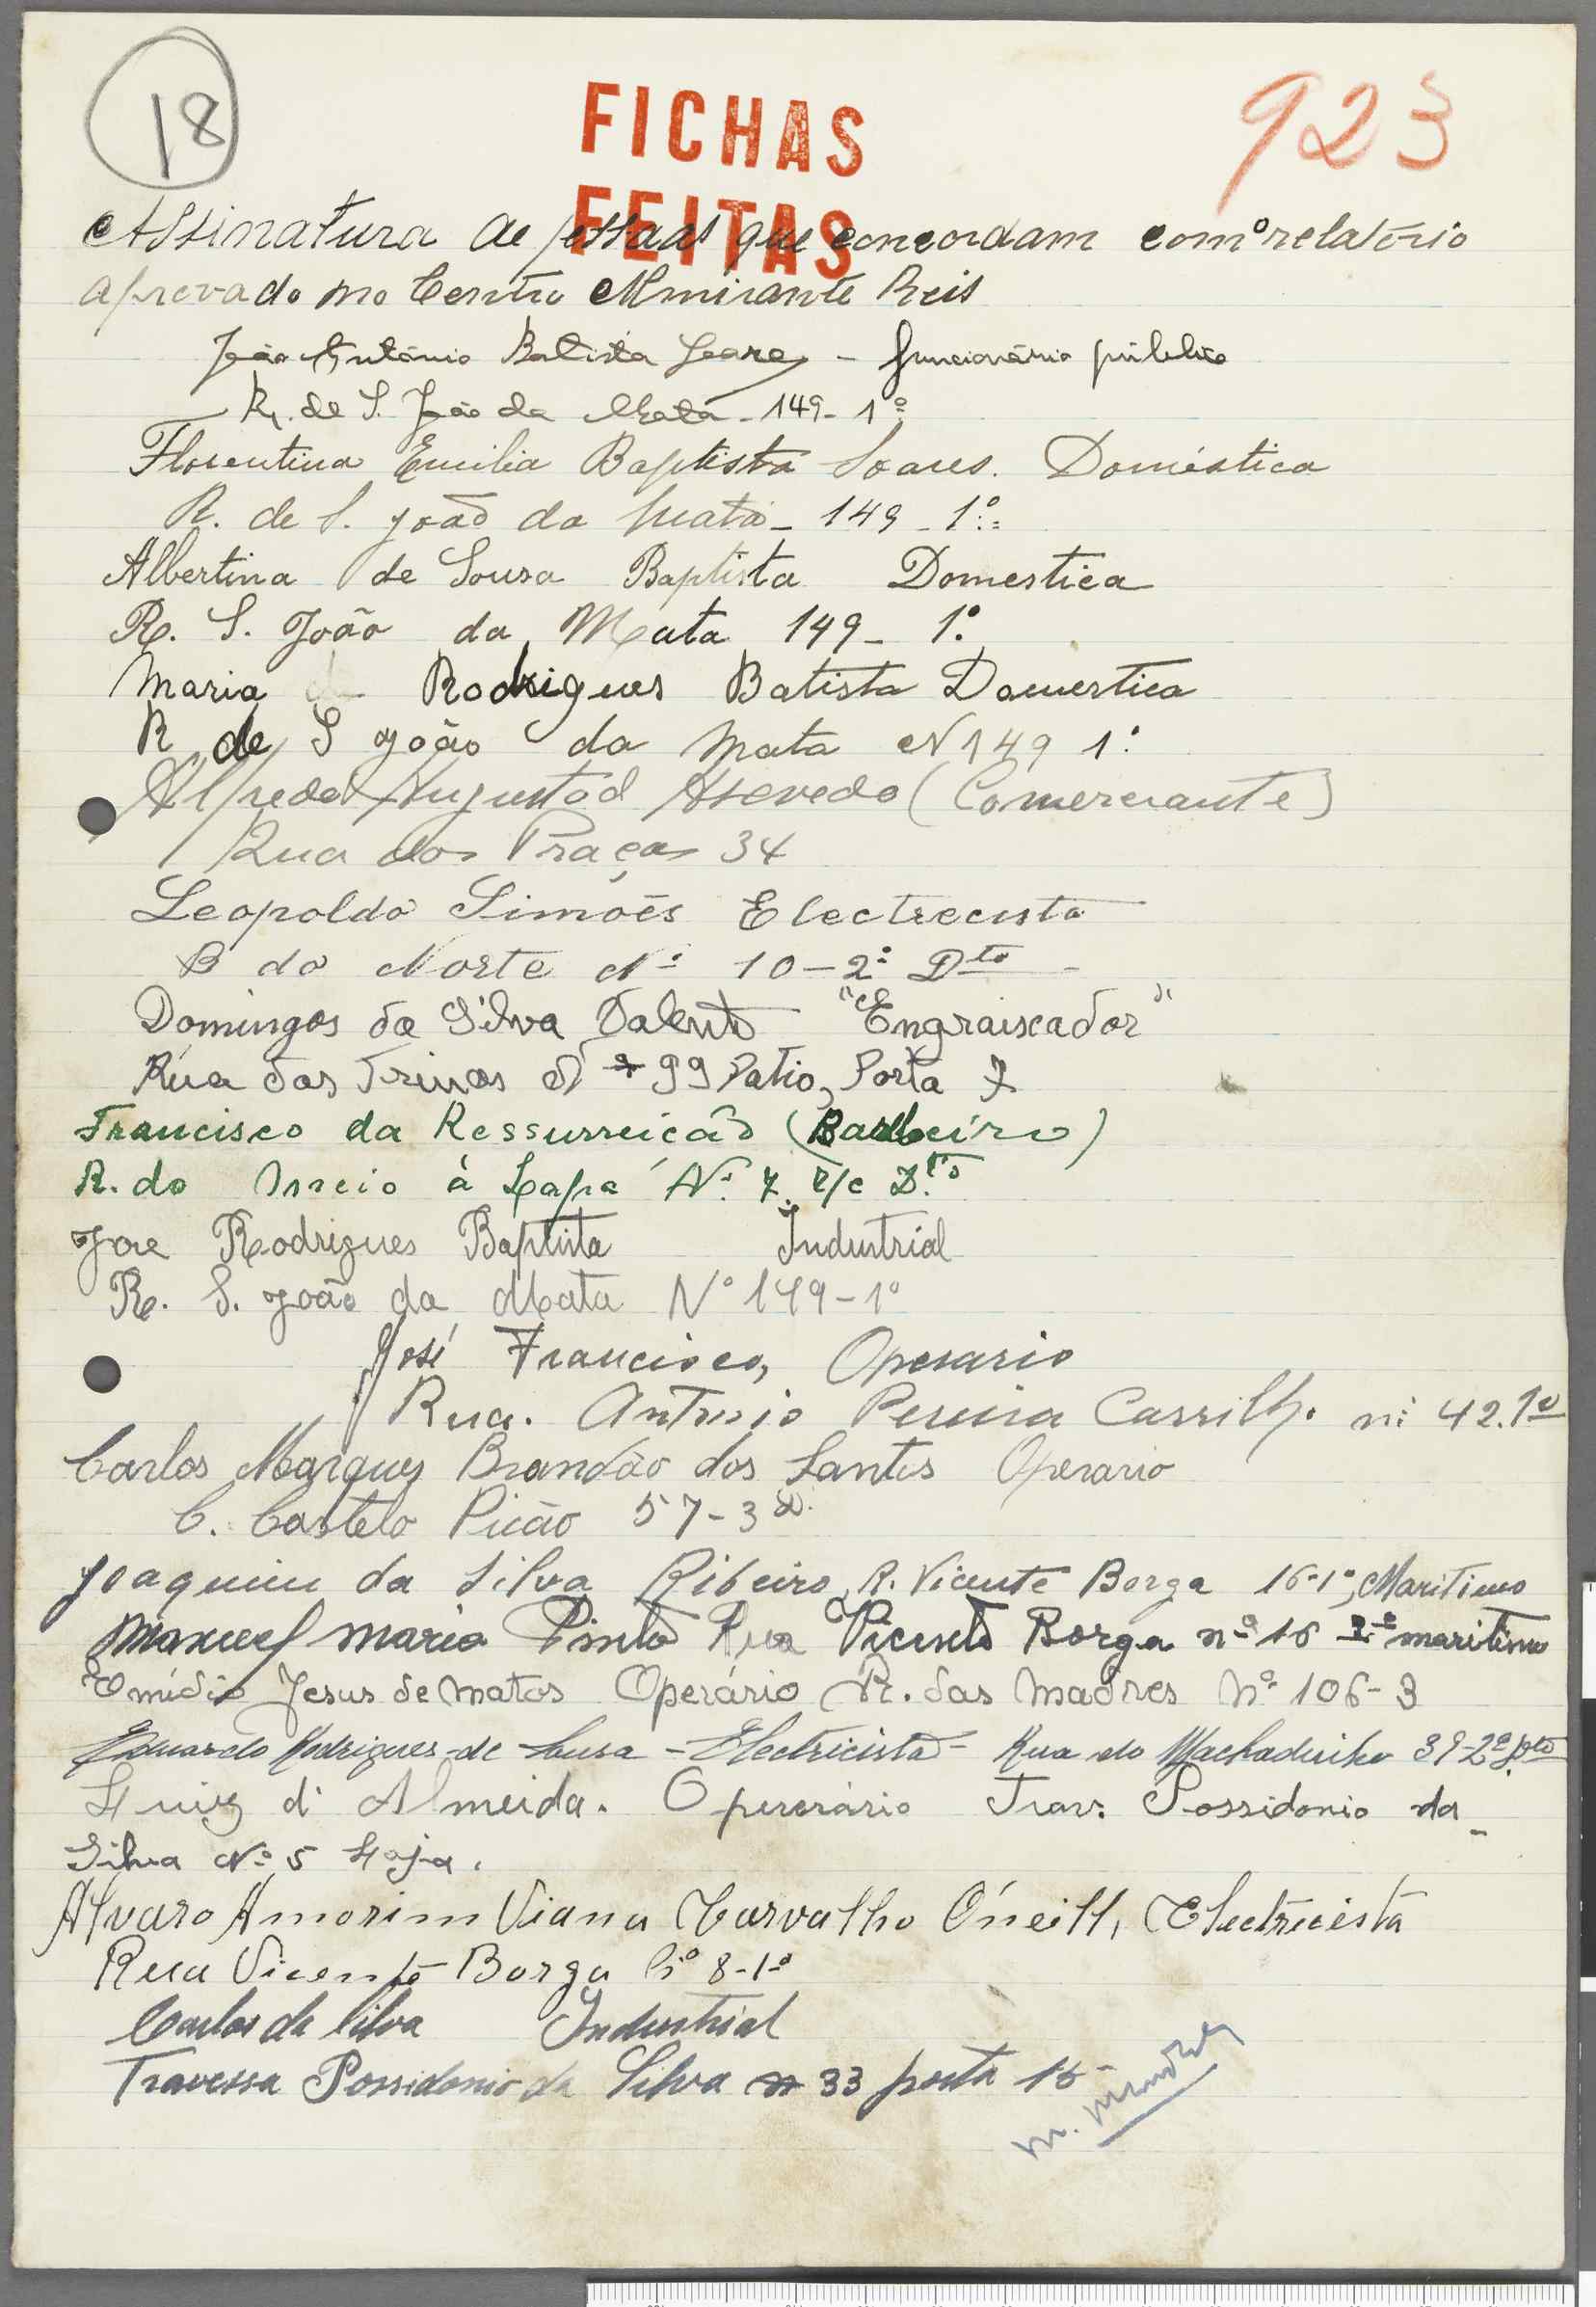 18
923
FICHAS
FEITAS
Assinatura de pessoas que concordam com o relatório
aprovado no Centro Almirante Reis
João António Batista Soares - funcionário público
R. de S. João da Mata - 149 - 1º
Florentina Emilia Baptista Soares. Doméstica
R. de S. João da Mata - 149 - 1º
Albertina de Sousa Baptista Domestica
R. S. João da Mata 149 - 1º
Maria Rodrigues Batista Domestica
R de S João da Mata N 149 1º
Alfredo Augusto d Asevedo (Comerciante)
Rua das Praças 34
Leopoldo Simões Electrecista
B do Norte Nº 10 - 2º Dto
Domingos da Silva Valente "Engraixador"
Rúa das Trinas Nº 99 Patio, Porta 7
Francisco da Ressurreicão (Barbeiro)
R. do à Lapa Nº 7 r/c D.to
Jose Rodrigues Baptista Industrial
R. S. João da Mata Nº 149 - 1º
José Francisco, Operario
Rua. Antonio Pereira Carrilho nº 42. 1º
Carlos Marques Brandão dos Santos Operario
C. Castelo Picão 57 - 3º
Joaquim da Silva Ribeiro, R. Vicente Borga 16-1º, Maritimo
Manuel maria Pinto Rua Vicente Borga nº 16 2º maritimo
Emidio Jesus de Matos Operário R. das Madres Nº 106 - 3
Eduardo Rodrigues de Sousa - Electricista - Rua do Machadinho 39-2º Dto
Luiz d' Almeida. Opererário Trav. Possidonio da
Silva Nº 5 Loja.
Alvaro Amorim Viana Carvalho O'neill, Electricista
Rua Vicente Borga nº 8-1º
Carlos da Silva Industrial
Travessa Possidonio da Silva nº 33 porta 16